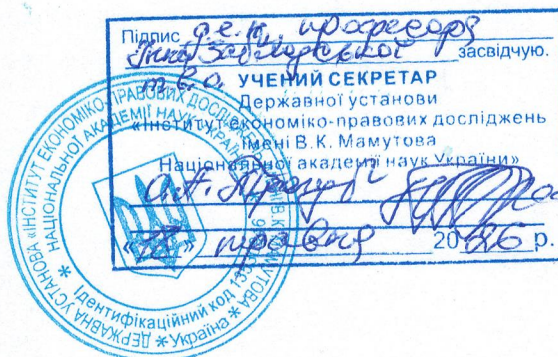 Підпис д.е.н., професора
засвідчую.
т.в.о. УЧЕНИЙ СЕКРЕТАР
Державної установи
«Інститут економіко-правових досліджень
імені В.К. Мамутова
Національної академії наук України»
« » травня 2026 р.
ДЕРЖАВНА УСТАНОВА «ІНСТИТУТ ЕКОНОМІКО-ПРАВОВИХ ДОСЛІДЖЕНЬ ІМЕНІ В.К. МАМУТОВА
НАЦІОНАЛЬНОЇ АКАДЕМІЇ НАУК УКРАЇНИ»
* Ідентифікаційний код
* Україна *